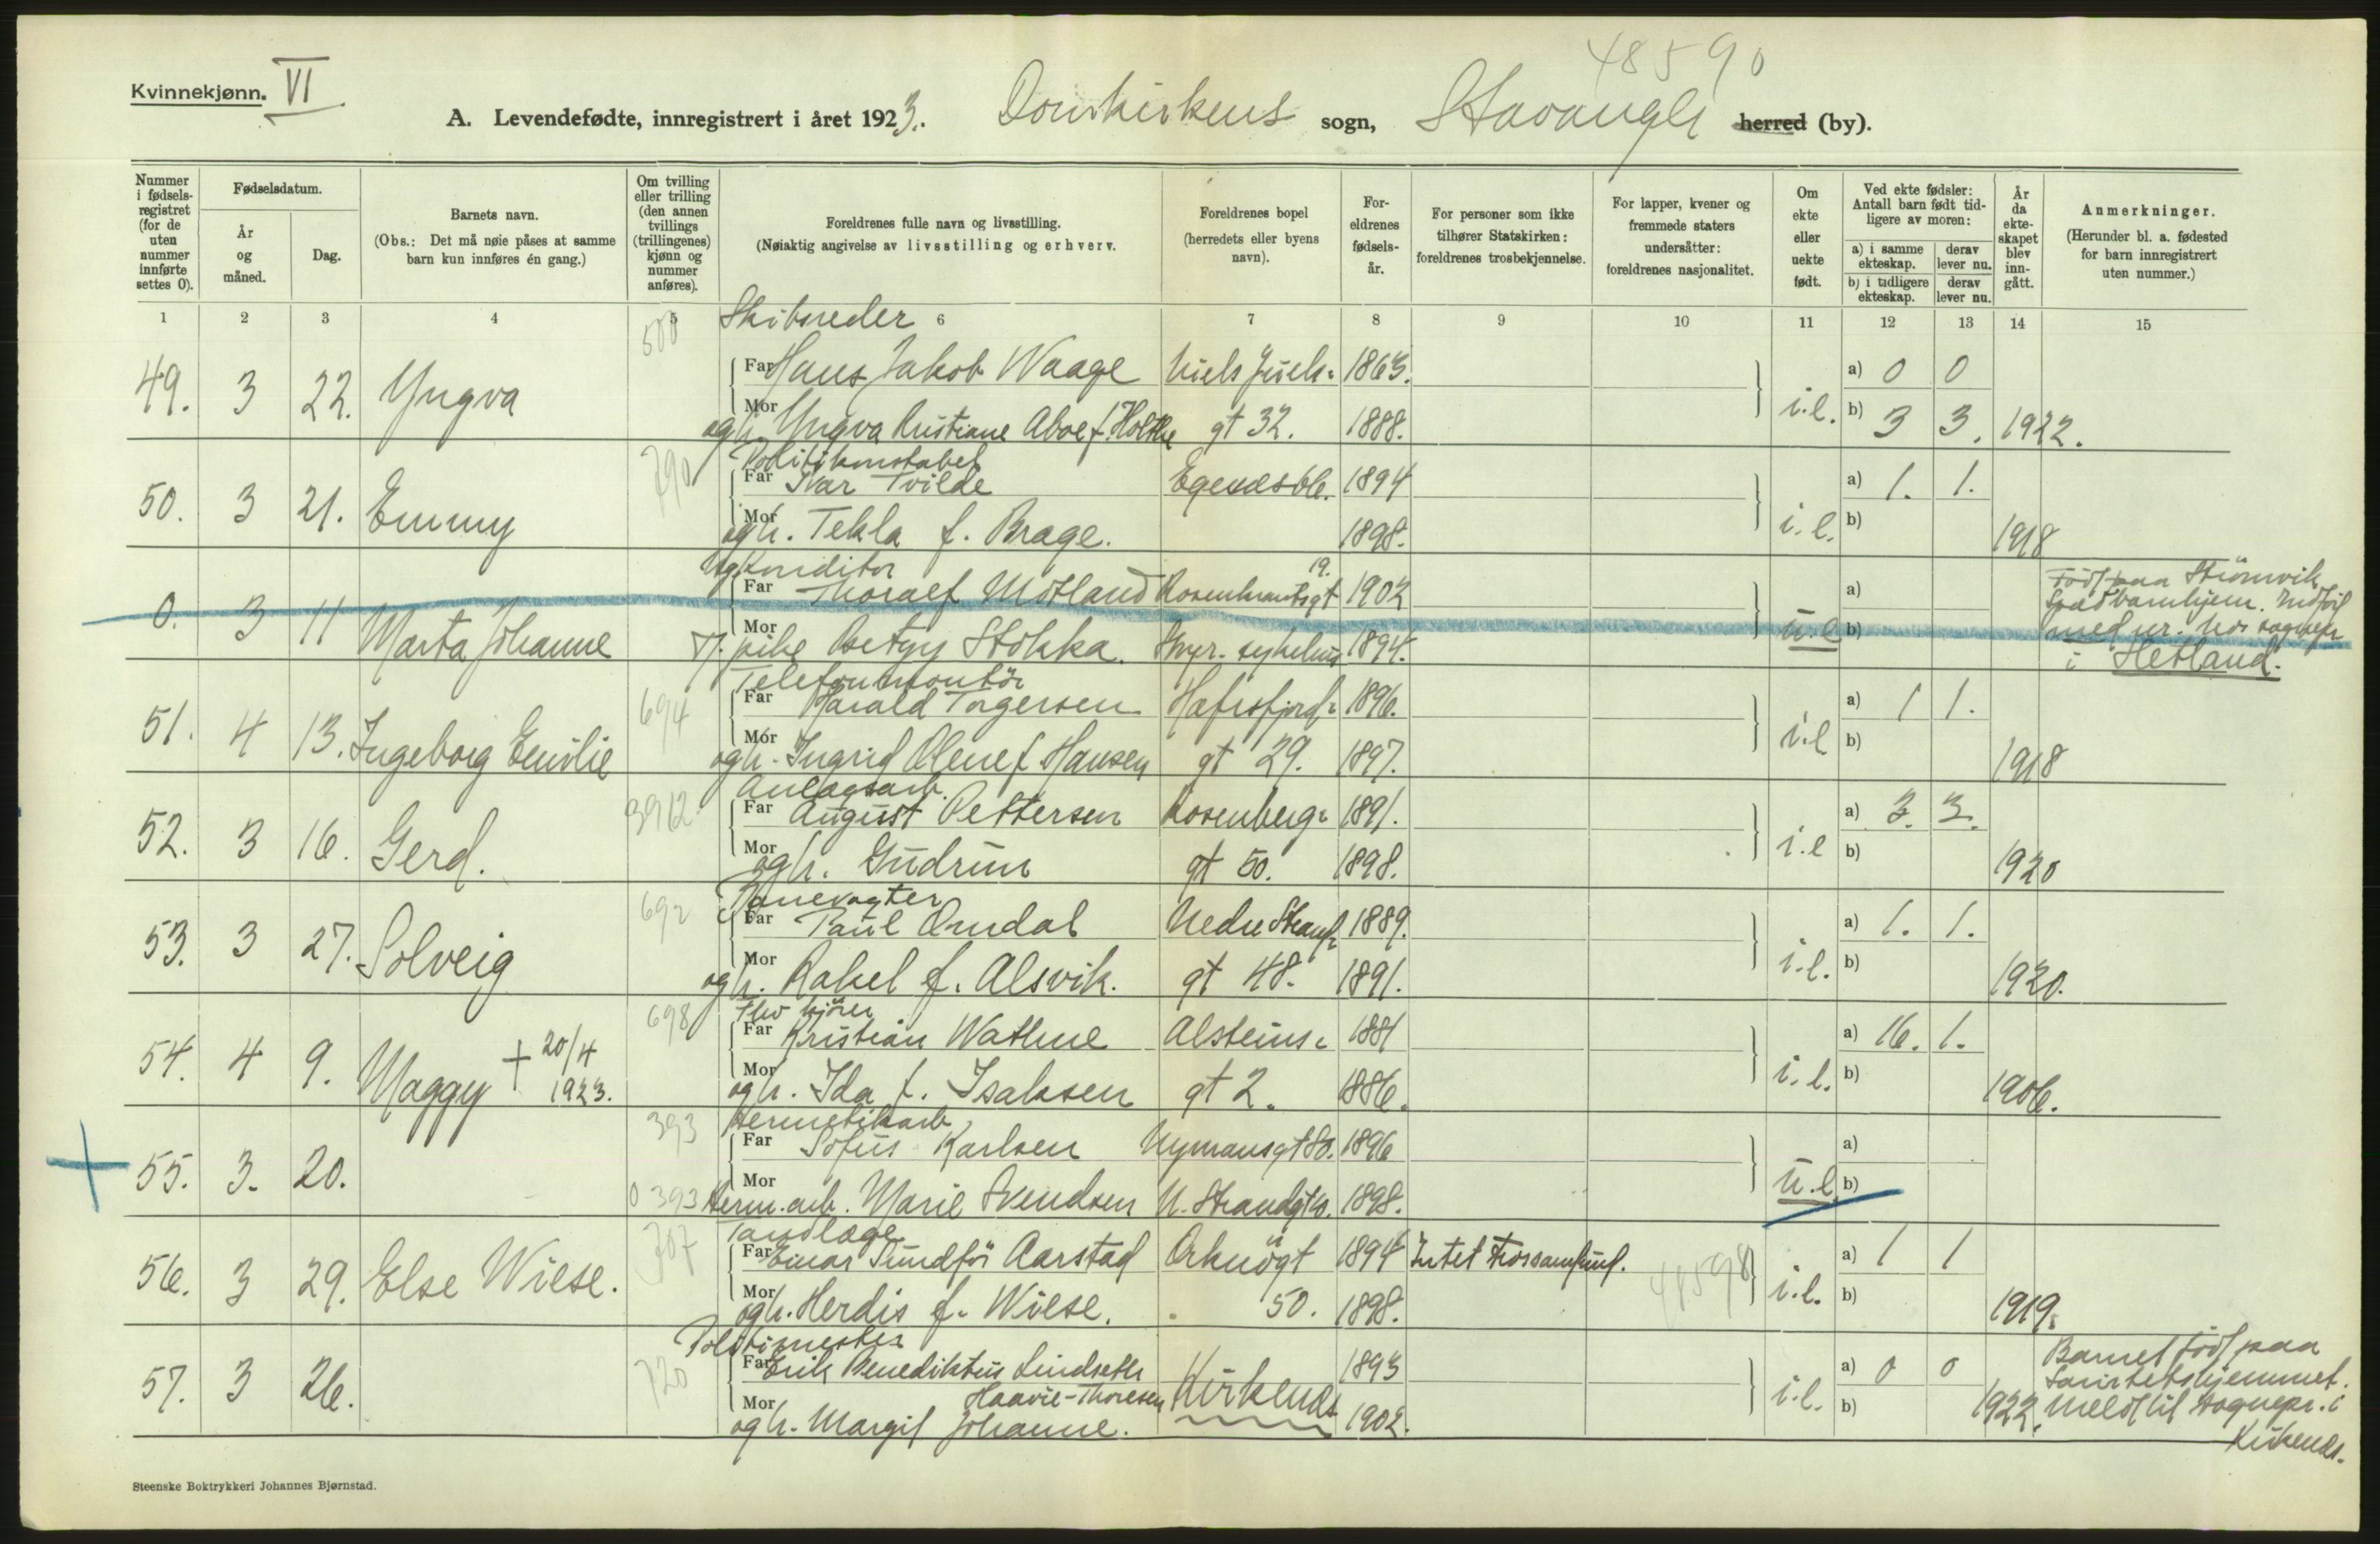 48590
Kvinnekjønn. VI
A. Levendefødte, innregistrert i året 1923. Domkirkens sogn, Stavanger herred (by).
Nummer i fødsels-registret (for de uten nummer innførte settes 0).
Fødselsdatum.
År og måned.
Dag.
Barnets navn.
(Obs.: Det må nøie påses at samme barn kun innføres én gang.)
Om tvilling eller trilling (den annen tvillings (trillingenes) kjønn og nummer anføres).
Foreldrenes fulle navn og livsstilling.
(Nøiaktig angivelse av livsstilling og erhverv.
Foreldrenes bopel (herredets eller byens navn).
For-eldrenes fødsels-år.
For personer som ikke tilhører Statskirken: foreldrenes trosbekjennelse.
For lapper, kvener og fremmede staters undersåtter: foreldrenes nasjonalitet.
Om ekte eller uekte født.
Ved ekte fødsler: Antall barn født tid-ligere av moren:
a) i samme ekteskap.
derav lever nu.
b) i tidligere ekteskap.
derav lever nu.
År da ekte-skapet blev inn-gått.
Anmerkninger.
(Herunder bl. a. fødested for barn innregistrert uten nummer.)
1 2 3 4 5 6 7 8 9 10 11 12 13 14 15
500 Skibsreder
49. 3 22. Yngva Far Hans Jakob Waage Niels Juels- 1863. a) 0 0
Mor og h. Yngva Kristiane Aboe f. Holthe gt 32. 1888. i.e. b) 3 3. 1922.
790 Politikonstabel
50. 3 21. Emmy Far Ivar Tvilde Egenæsbl. 1894 a) 1. 1.
Mor og h. Tekla f. Brage. 1898. i.e. b) 1918
Ugkonditor
0. 3 11 Marta Johanne Far Thoralf Motland Rosenkrantzgt 19. 1902 a)
Mor T. pike Betzy Stokka. Styr. sykehus 1894. u.e b)
Född paa Strømvik
Spædbarnhjem. Indförd
med nr. hos sognepr
i Hetland.
694 Telefonmontör
51. 4 13. Ingeborg Emilie Far Harald Torgersen Hafrsfjord- 1896. a) 1 1.
Mor og h. Ingrid Olene f. Hansen gt 29. 1897. i.e b) 1918
3912 Anlægsarb.
52. 3 16. Gerd. Far August Pettersen Rosenberg- 1891. a) 3. 3.
Mor og h. Gudrun gt 50. 1898. i.e b) 1920
692 Banevogter
53. 3 27. Solveig Far Paul Omdal Nedre Strand- 1889. a) 1. 1.
Mor og h. Rakel f. Alsvik. gt 48. 1891. i.e. b) 1920.
698 kjörer
54. 4 9. Maggy + 20/4 1923. Far Kristian Wathne Alsteins- 1881 a) 16. 1.
Mor og h. Ida f. Isaksen gt 2. 1886. i.e. b) 1906.
393 Hermetikarb
55. 3. 20. Far Sofus Karlsen Nymansgt 80. 1896 a)
0 393 Mor Herm. arb. Marie Svendsen N. Strandgt 1898. u.e. b)
707 Tandlæge
56. 3 29. Else Wiese. Far Einar Sundför Aarstad Orknögt 1894 Intet trossamfund. a) 1 1
Mor og h. Herdis f. Wiese. 50. 1898. 48598 i.e. b) 1919.
720 Politimester
57. 3 26. Far Erik Benediktus Lindseth Kirkenæs 1893 a) 0 0
Haavie-Thoresen
Mor og h. Margit Johanne. 1902. i.e. b) 1922.
Barnet född paa
Sanitetshjemmet.
Meldt til sognepr. i
Kirkenæs.
Steenske Boktrykkeri Johannes Bjørnstad.